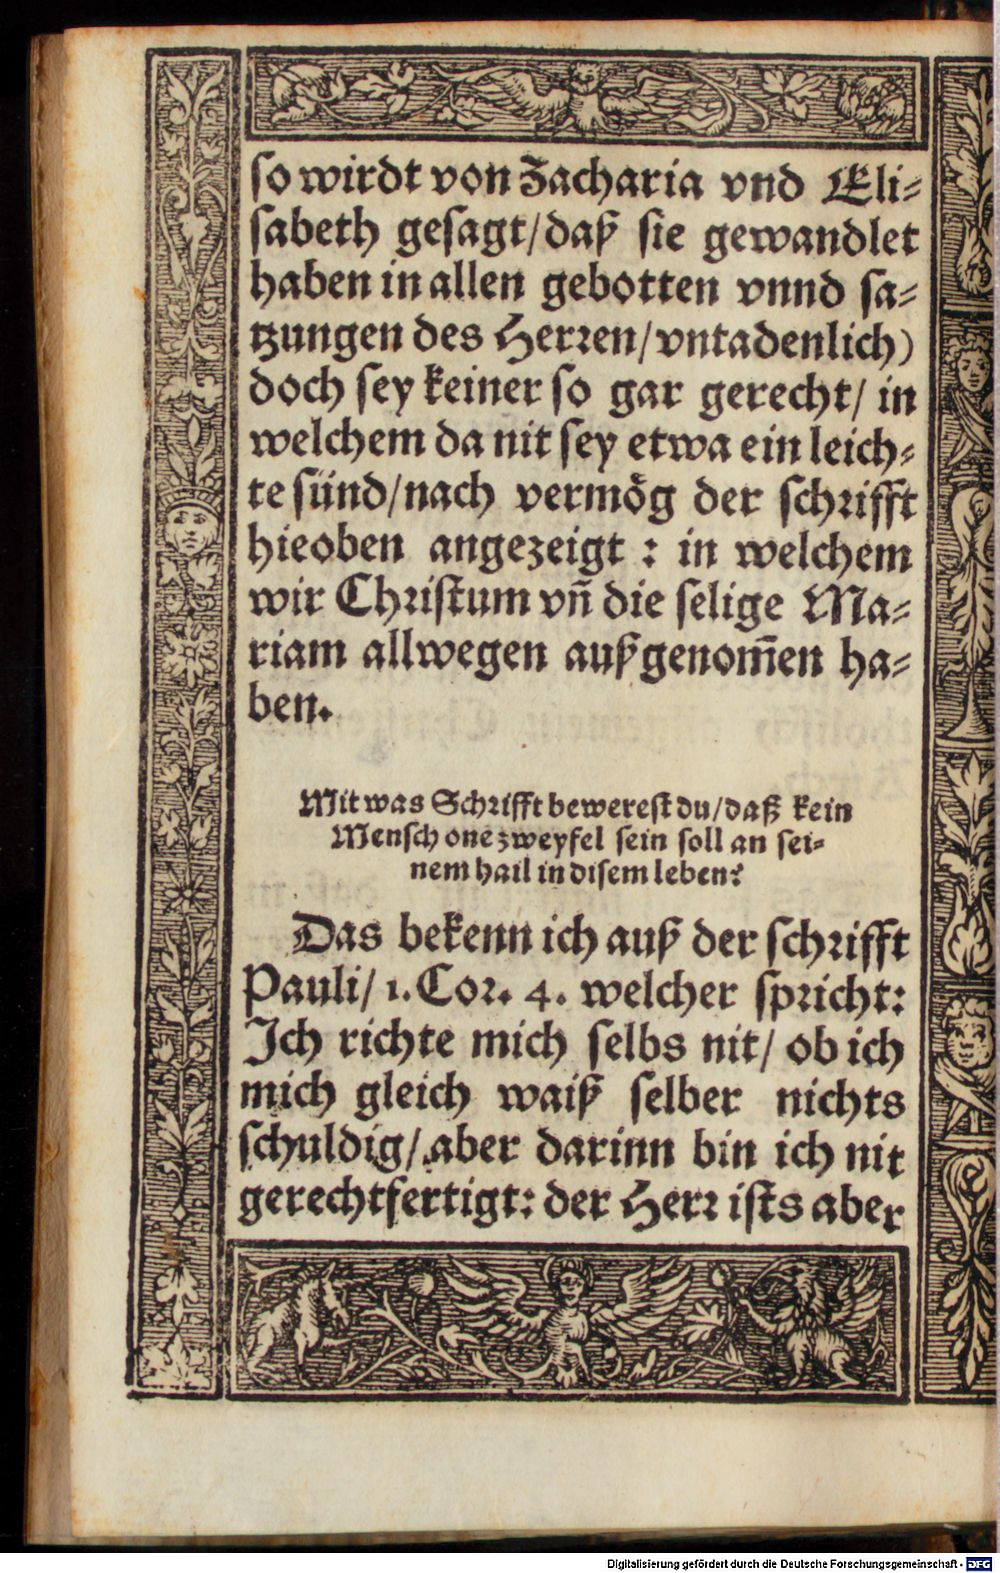 so wirdt von Zacharia vnd Eli⸗
sabeth gesagt/daß sie gewandlet
haben in allen gebotten vnnd sa⸗
tzungen des Herren/vntadenlich)
doch sey keiner so gar gerecht/ in
welchem da nit sey etwa ein leich⸗
te sünd/nach vermög der schrifft
hieoben angezeigt : in welchem
wir Christum vñ die selige Ma⸗
riam allwegen außgenom̃en ha⸗
ben.
Mit was Schrifft bewerest du/daß kein
Mensch one zweyfel sein soll an sei⸗
nem hail in disem leben?
Das bekenn ich auß der schrifft
Pauli/ 1. Cor. 4. welcher spricht:
Ich richte mich selbs nit/ ob ich
mich gleich waiß selber nichts
schuldig/ aber darinn bin ich nit
gerechtfertigt: der Herr ists aber
Digitalisierung gefördert durch die Deutsche Forschungsgemeinschaft - DFG